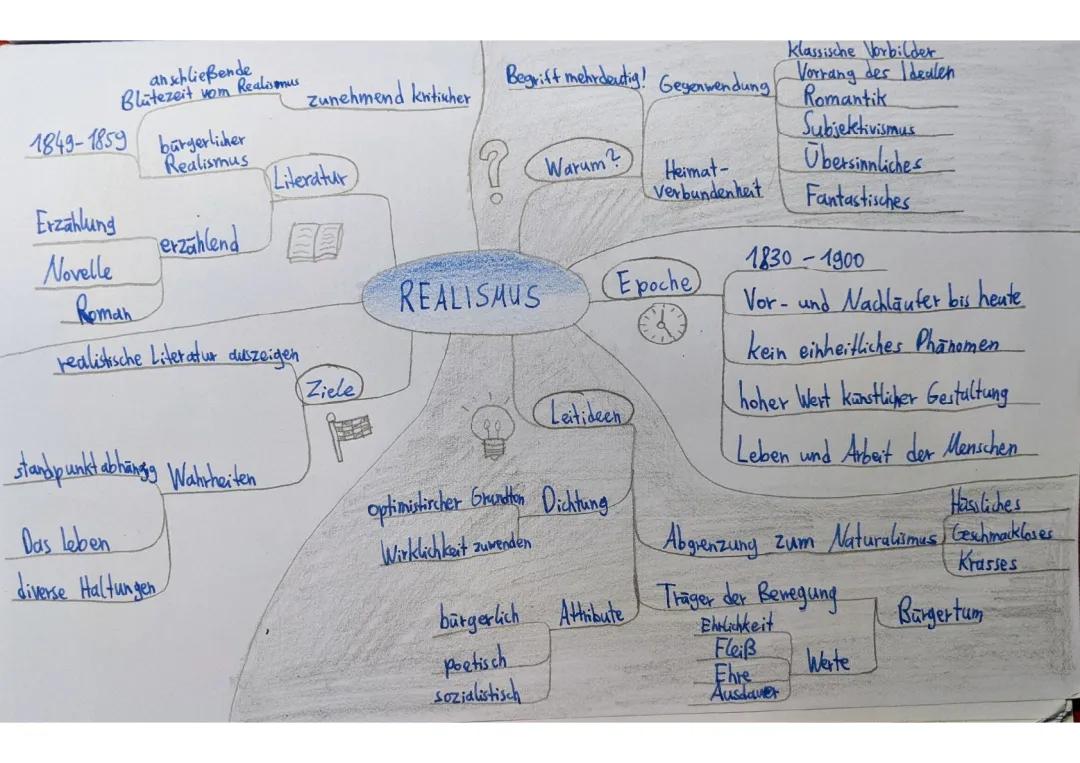 REALISMUS
Literatur
bürgerlicher
Realismus
1849-1859
anschließende
Blütezeit vom Realismus
zunehmend kritischer
erzählend
Erzählung
Novelle
Roman
?
Warum?
Begriff mehrdeutig!
Gegenwendung
klassische Vorbilder
Vorrang des Idealen
Romantik
Subjektivismus
Übersinnliches
Fantastisches
Heimat-
verbundenheit
Epoche
1830 - 1900
Vor- und Nachläufer bis heute
kein einheitliches Phänomen
hoher Wert künstlicher Gestaltung
Leben und Arbeit der Menschen
Leitideen
Dichtung
optimistischer Grundton
Wirklichkeit zuwenden
Abgrenzung zum Naturalismus
Hässliches
Geschmackloses
Krasses
Träger der Bewegung
Bürgertum
Werte
Ehrlichkeit
Fleiß
Ehre
Ausdauer
Attribute
bürgerlich
poetisch
sozialistisch
Ziele
realistische Literatur auszeigen
Wahrheiten
standpunktabhängig
Das Leben
diverse Haltungen